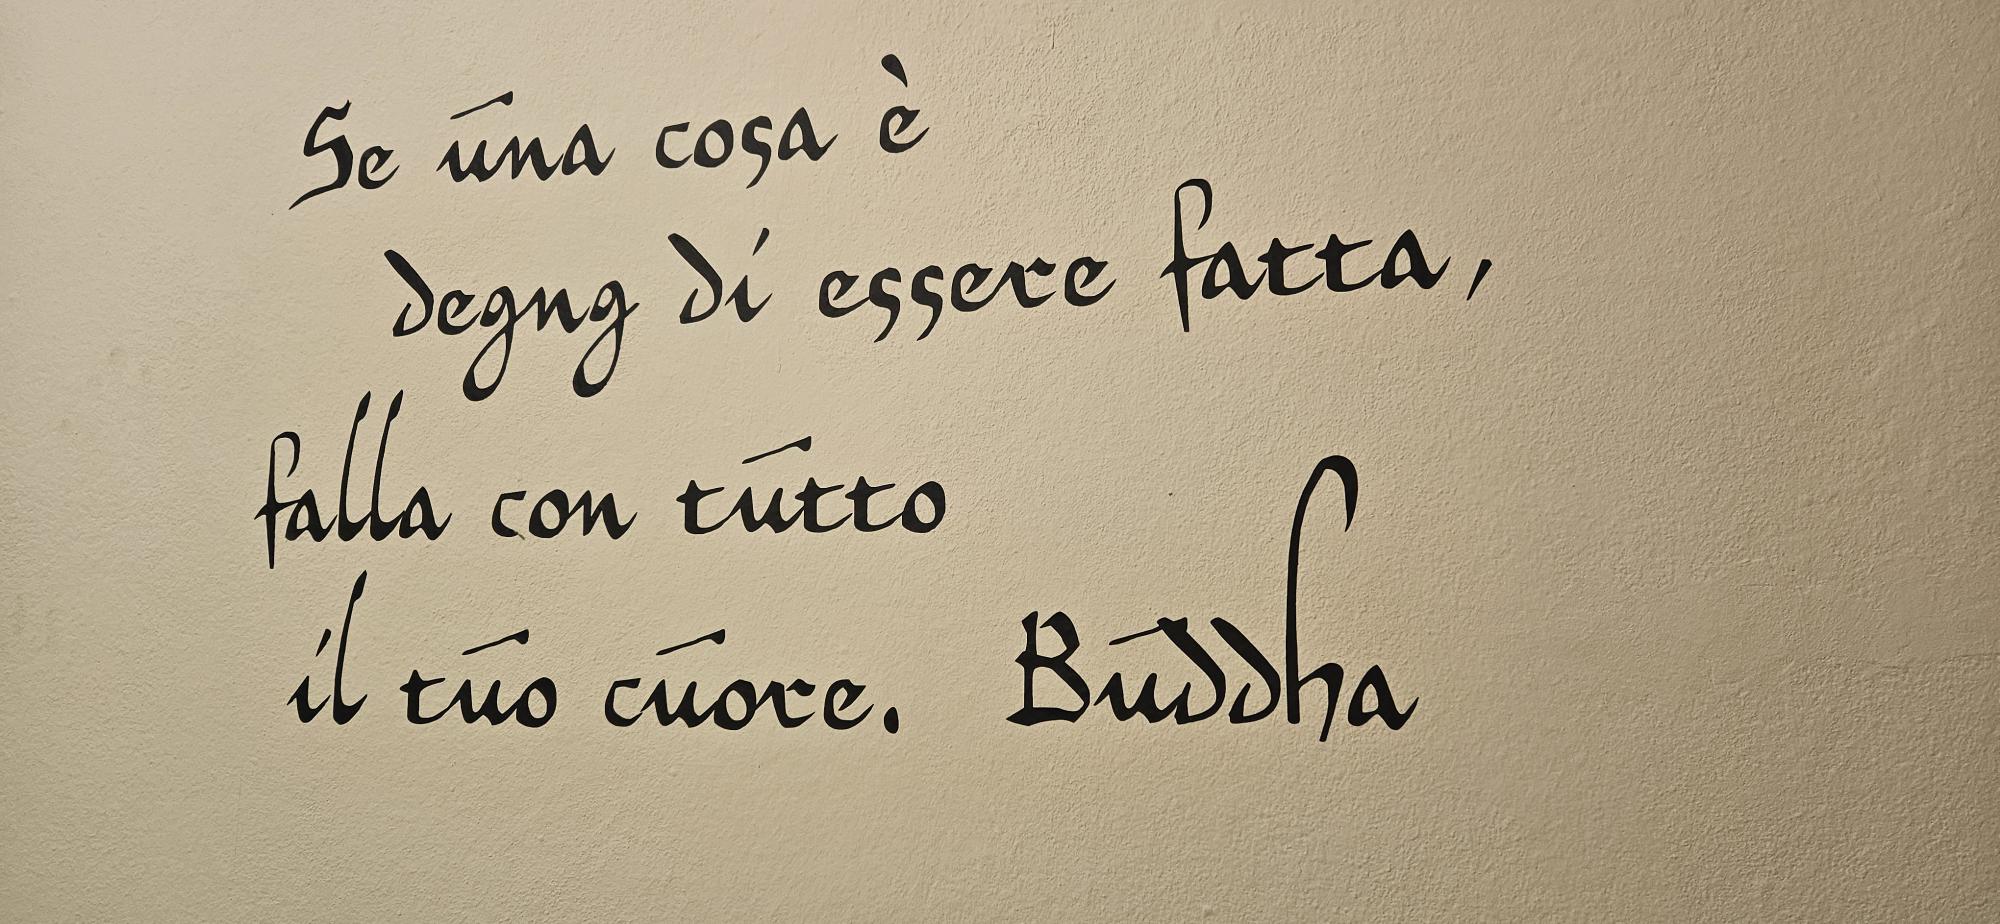 Se una cosa è
degng di essere fatta,
falla con tutto
il tuo cuore. Buddha